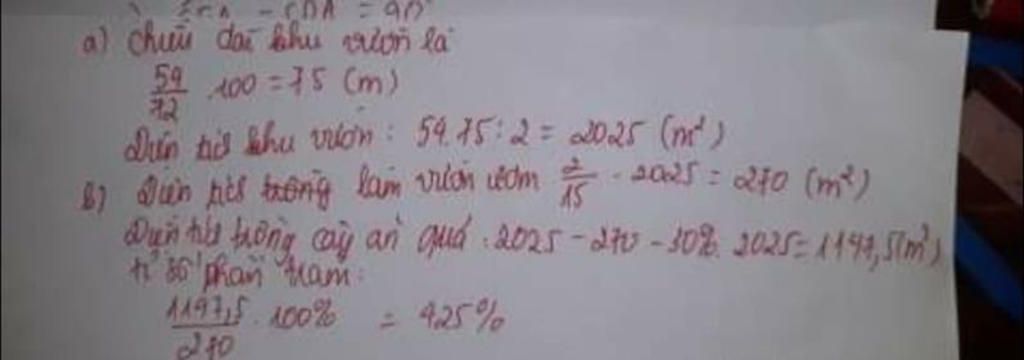 a) chiều dài khu vườn là
54/72 . 100 = 75 (m)
Diện tích khu vườn : 54.75 : 2 = 2025 (m²)
b) Diện tích trồng làm vườn ươm 2/15 . 2025 = 270 (m²)
Diện tích trồng cây ăn quả : 2025 - 270 - 30%. 2025 = 1147,5 (m²)
tỉ số phần trăm :
1147,5/270 . 100% = 425%